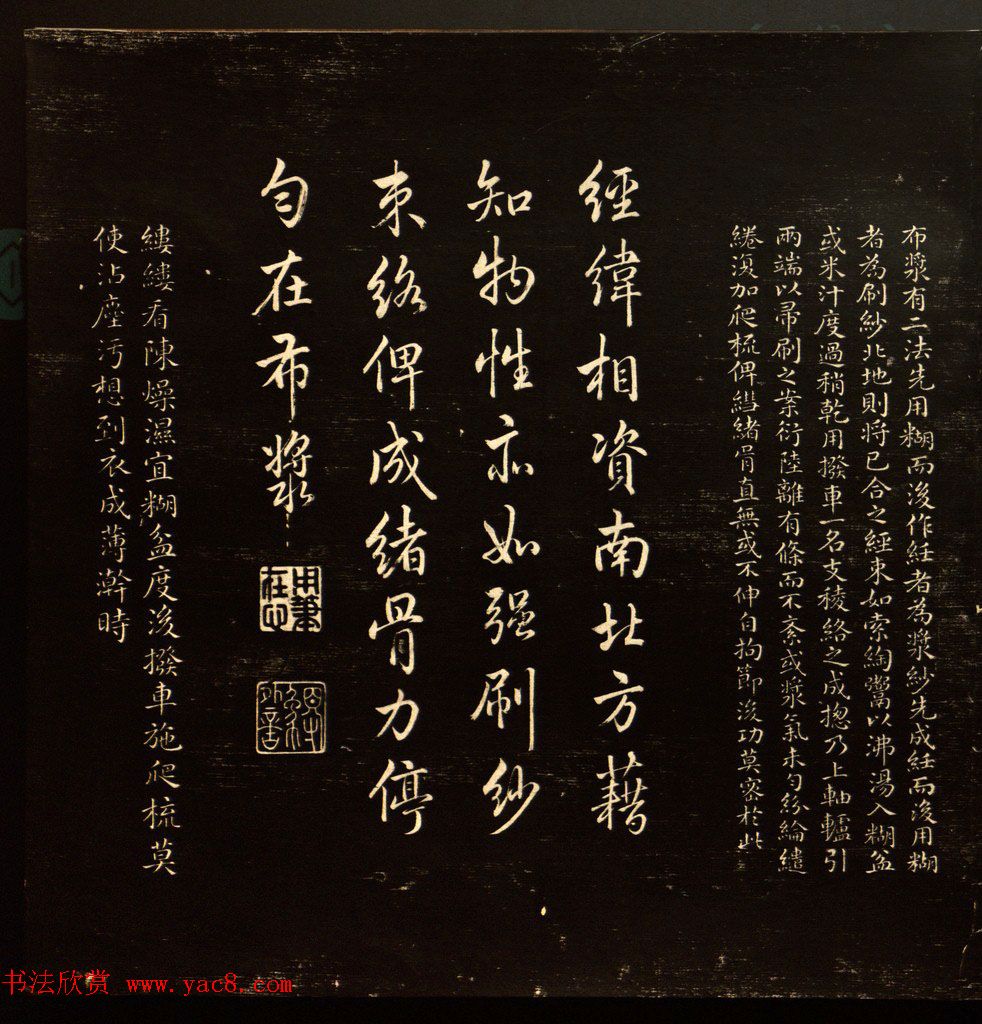 布漿有二法先用糊而後作絍者為漿紗先成絍而後用糊
者為刷紗北地則將已合之經束如索綯鬻以沸湯入糊盆
或米汁度過稍乾用撥車一名支稜絡之成揔乃上軸轤引
兩端以帚刷之案衍陸離有條而不紊或漿氣未勻紛綸繾
綣復加爬梳俾繼緒骨直無或不伸自拘節後功莫密於此
經緯相資南北方藉
知物性亦如强刷紗
束絡俾成緒骨力停
勻在布漿
用筆在心
縷縷看陳燥濕宜糊盆度後撥車施爬梳莫
使沾塵汚想到衣成薄澣時
书法欣赏 www.yac8.com